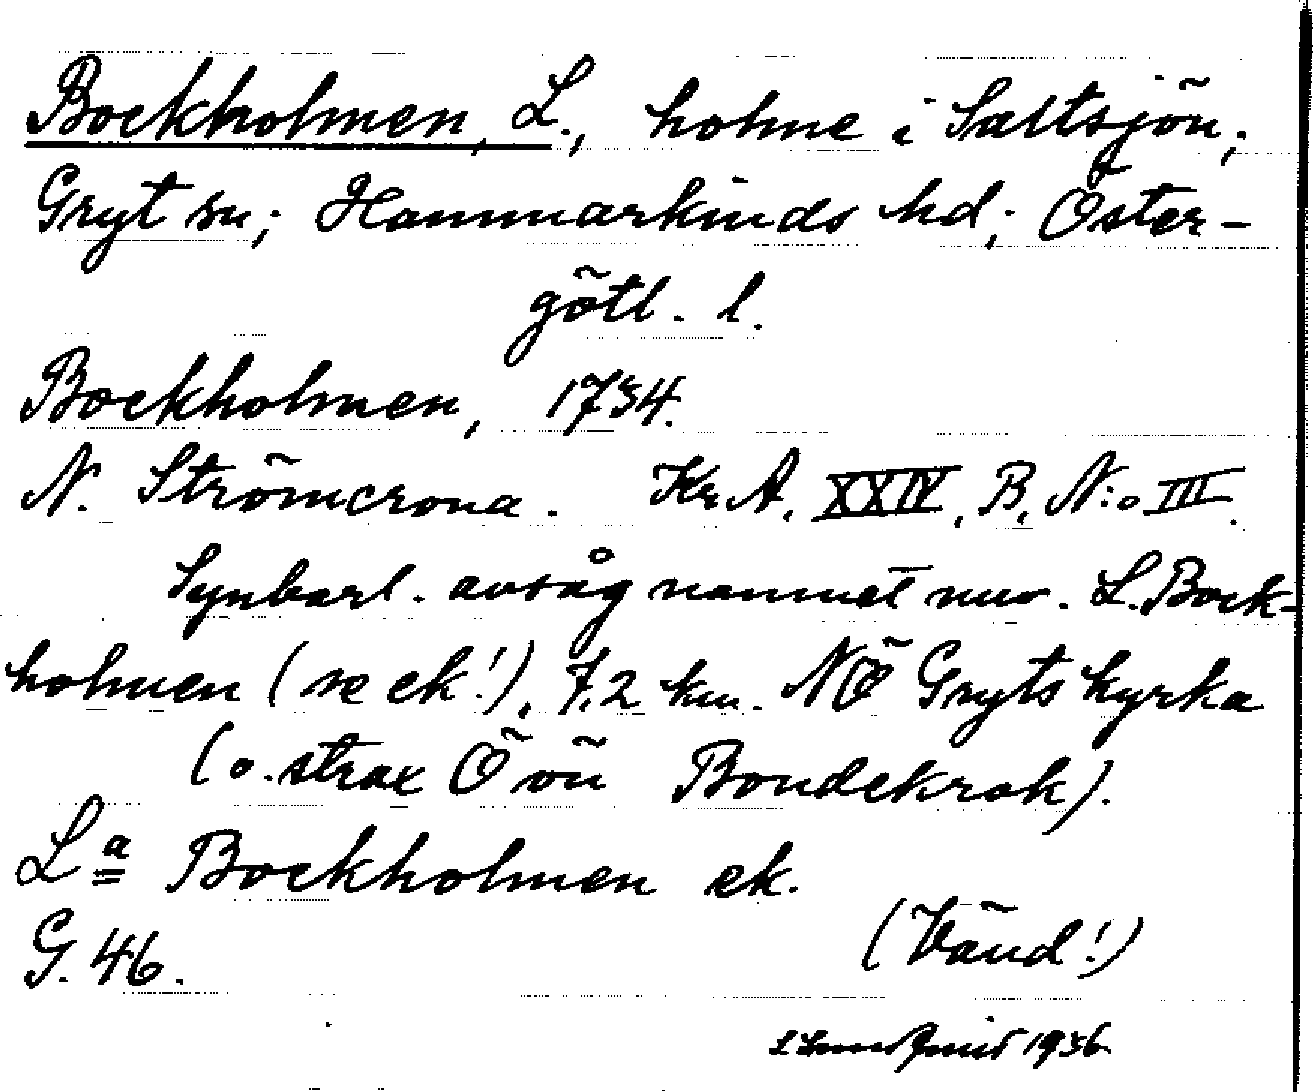 Bockholmen, L., holme i Saltsjön,
Gryt sn; Hammarkinds hd; Öster-
götl. l.
Bockholmen, 1734.
N. Strömcrona. Kr. A. XXIV, B, N:o III.
Synbarl. avsåg namnet nuv. L. Bock-
holmen (se ek!), 7,2 km. NÖ Gryts kyrka
(o. strax Ö om Bondekrok).
La Bockholmen ek.
G. 46.
(Vänd!)
1936